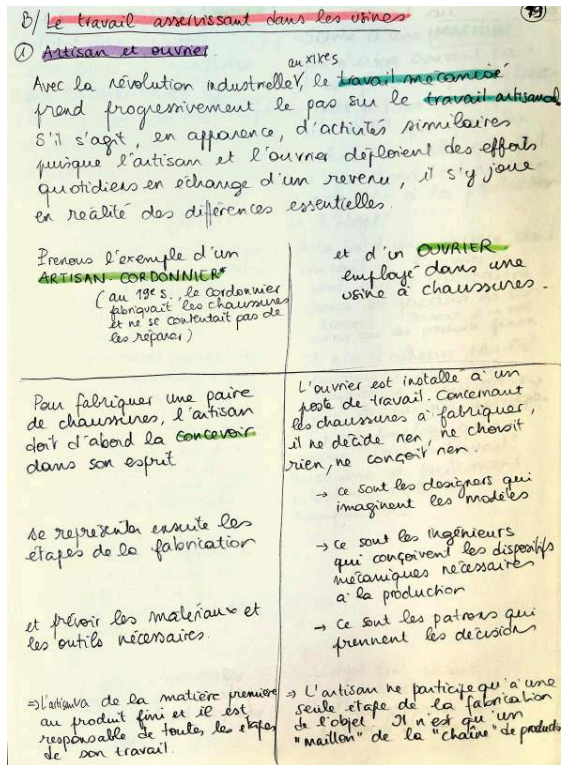 B/ Le travail asservissant dans les usines
79
① Artisan et ouvrier.
aux XIXe s
Avec la révolution industrielle, le travail mécanisé
prend progressivement le pas sur le travail artisanal
S'il s'agit, en apparence, d'activités similaires
puisque l'artisan et l'ouvrier déploient des efforts
quotidiens en échange d'un revenu, il s'y joue
en réalité des différences essentielles.
Prenons l'exemple d'un
ARTISAN-CORDONNIER*
(au 19e s, le cordonnier
fabriquait les chaussures
et ne se contentait pas de
les réparer)
et d'un OUVRIER
employé dans une
usine à chaussures.
Pour fabriquer une paire
de chaussures, l'artisan
doit d'abord la concevoir
dans son esprit
se représenter ensuite les
étapes de la fabrication
et prévoir les matériaux et
les outils nécessaires.
=> L'artisan va de la matière première
au produit fini et il est
responsable de toutes les étapes
de son travail.
L'ouvrier est installé à un
poste de travail. Concernant
les chaussures à fabriquer,
il ne décide rien, ne choisit
rien, ne conçoit rien.
→ ce sont les designers qui
imaginent les modèles
→ ce sont les ingénieurs
qui conçoivent les dispositifs
mécaniques nécessaires
à la production
→ ce sont les patrons qui
prennent les décisions
=> L'artisan ne participe qu'à une
seule étape de la fabrication
de l'objet. Il n'est qu'un
"maillon" de la "chaîne" de production